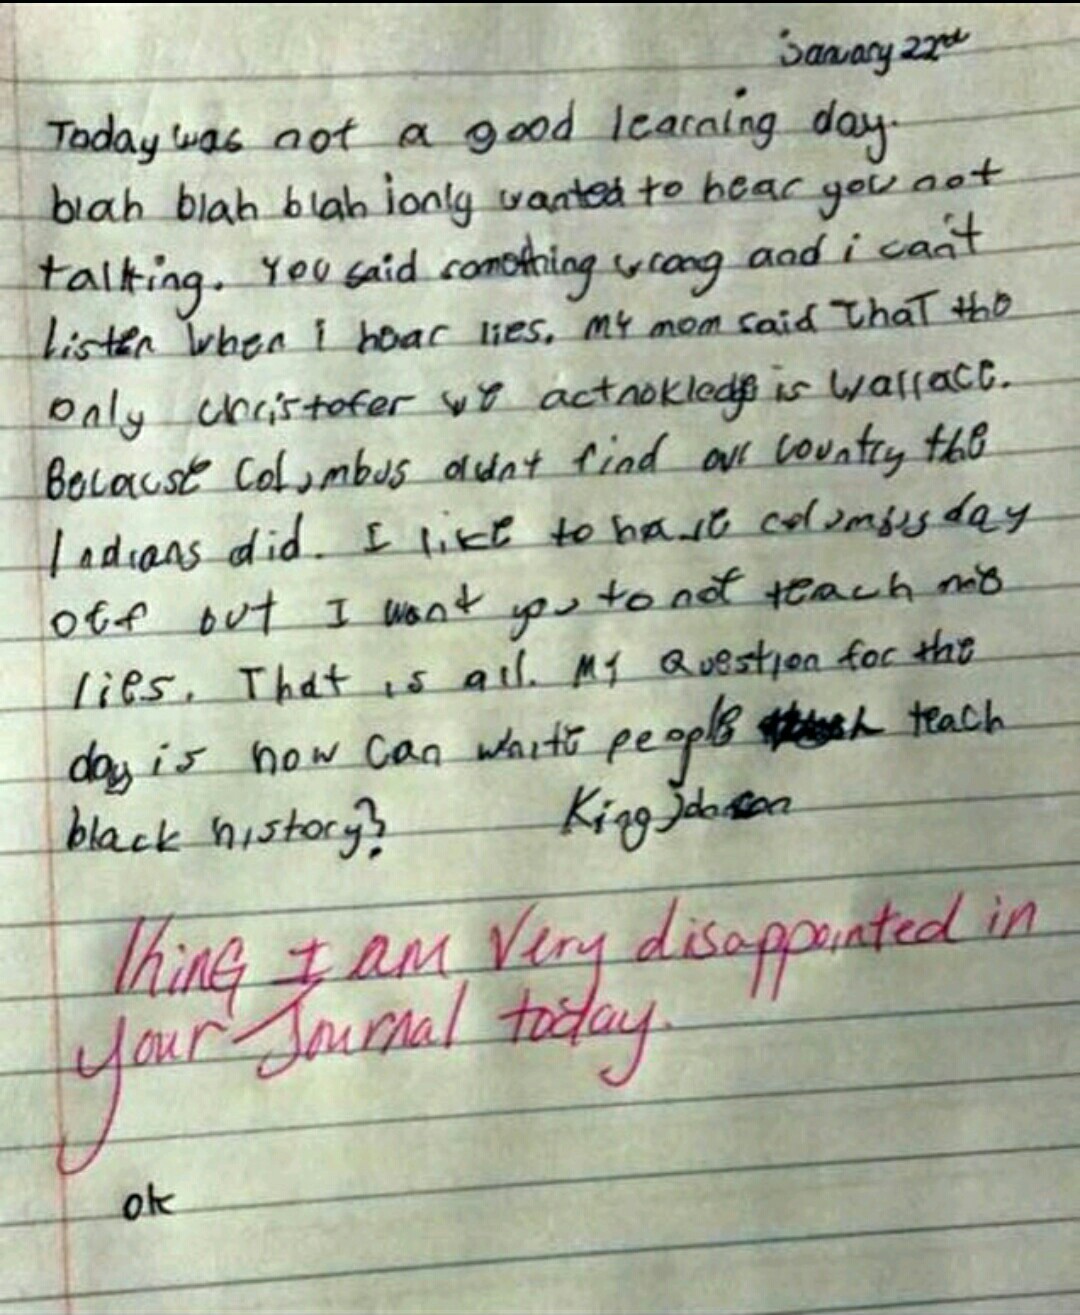 January 22nd
Today was not a good learning day.
blah blah blah i only wanted to hear you not
talking. You said something wrong and i can't
listen when i hear lies. My mom said that the
only christofer we actnokledge is Wallace.
Because Columbus didnt find our country the
Indians did. I like to have columbus day
off but I want you to not teach me
lies. That is all. My question for the
day is how can white people teach
black history?   King Johnson
King I am very disappointed in
your Journal today.
ok